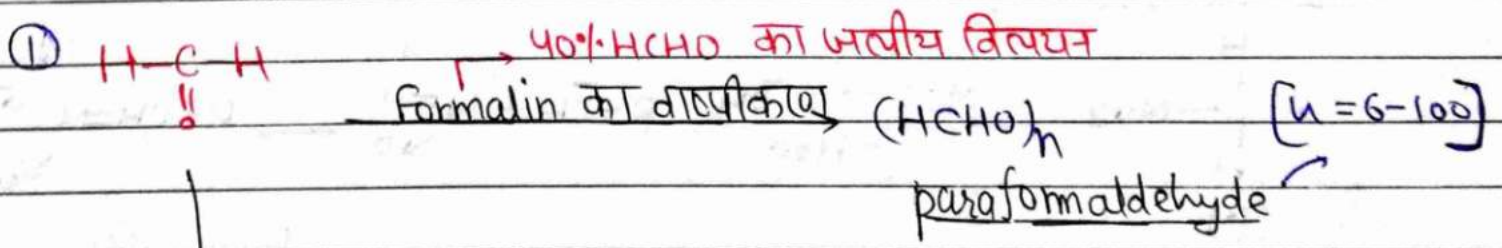 ① H-C-H → 40% HCHO का जलीय विलयन
|| 
O
Formalin का वाष्पीकरण → (HCHO)n [n = 6-100]
paraformaldehyde